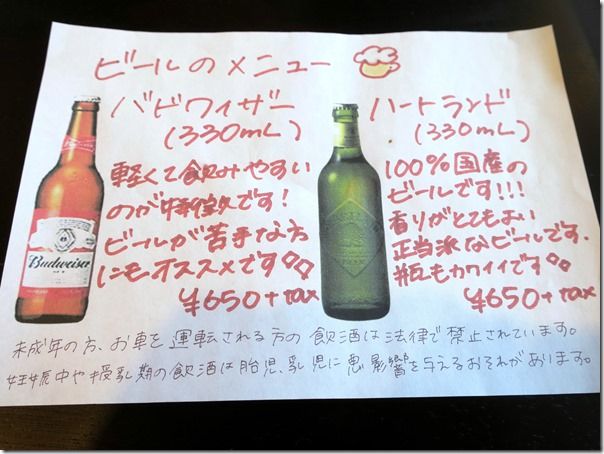 ビールのメニュー
バドワイザー
(330mL)
軽くて飲みやすい
のが特徴です!
ビールが苦手な方
にもオススメです♪♪
¥650+tax
Budweiser
ハートランド
(330mL)
100%国産の
ビールです!!!
香りがとてもよい
正当派なビールです.
瓶もカワイイです♪♪
¥650+tax
未成年の方、お車を運転される方の飲酒は法律で禁止されています。
妊娠中や授乳期の飲酒は胎児、乳児に悪影響を与えるおそれがあります。